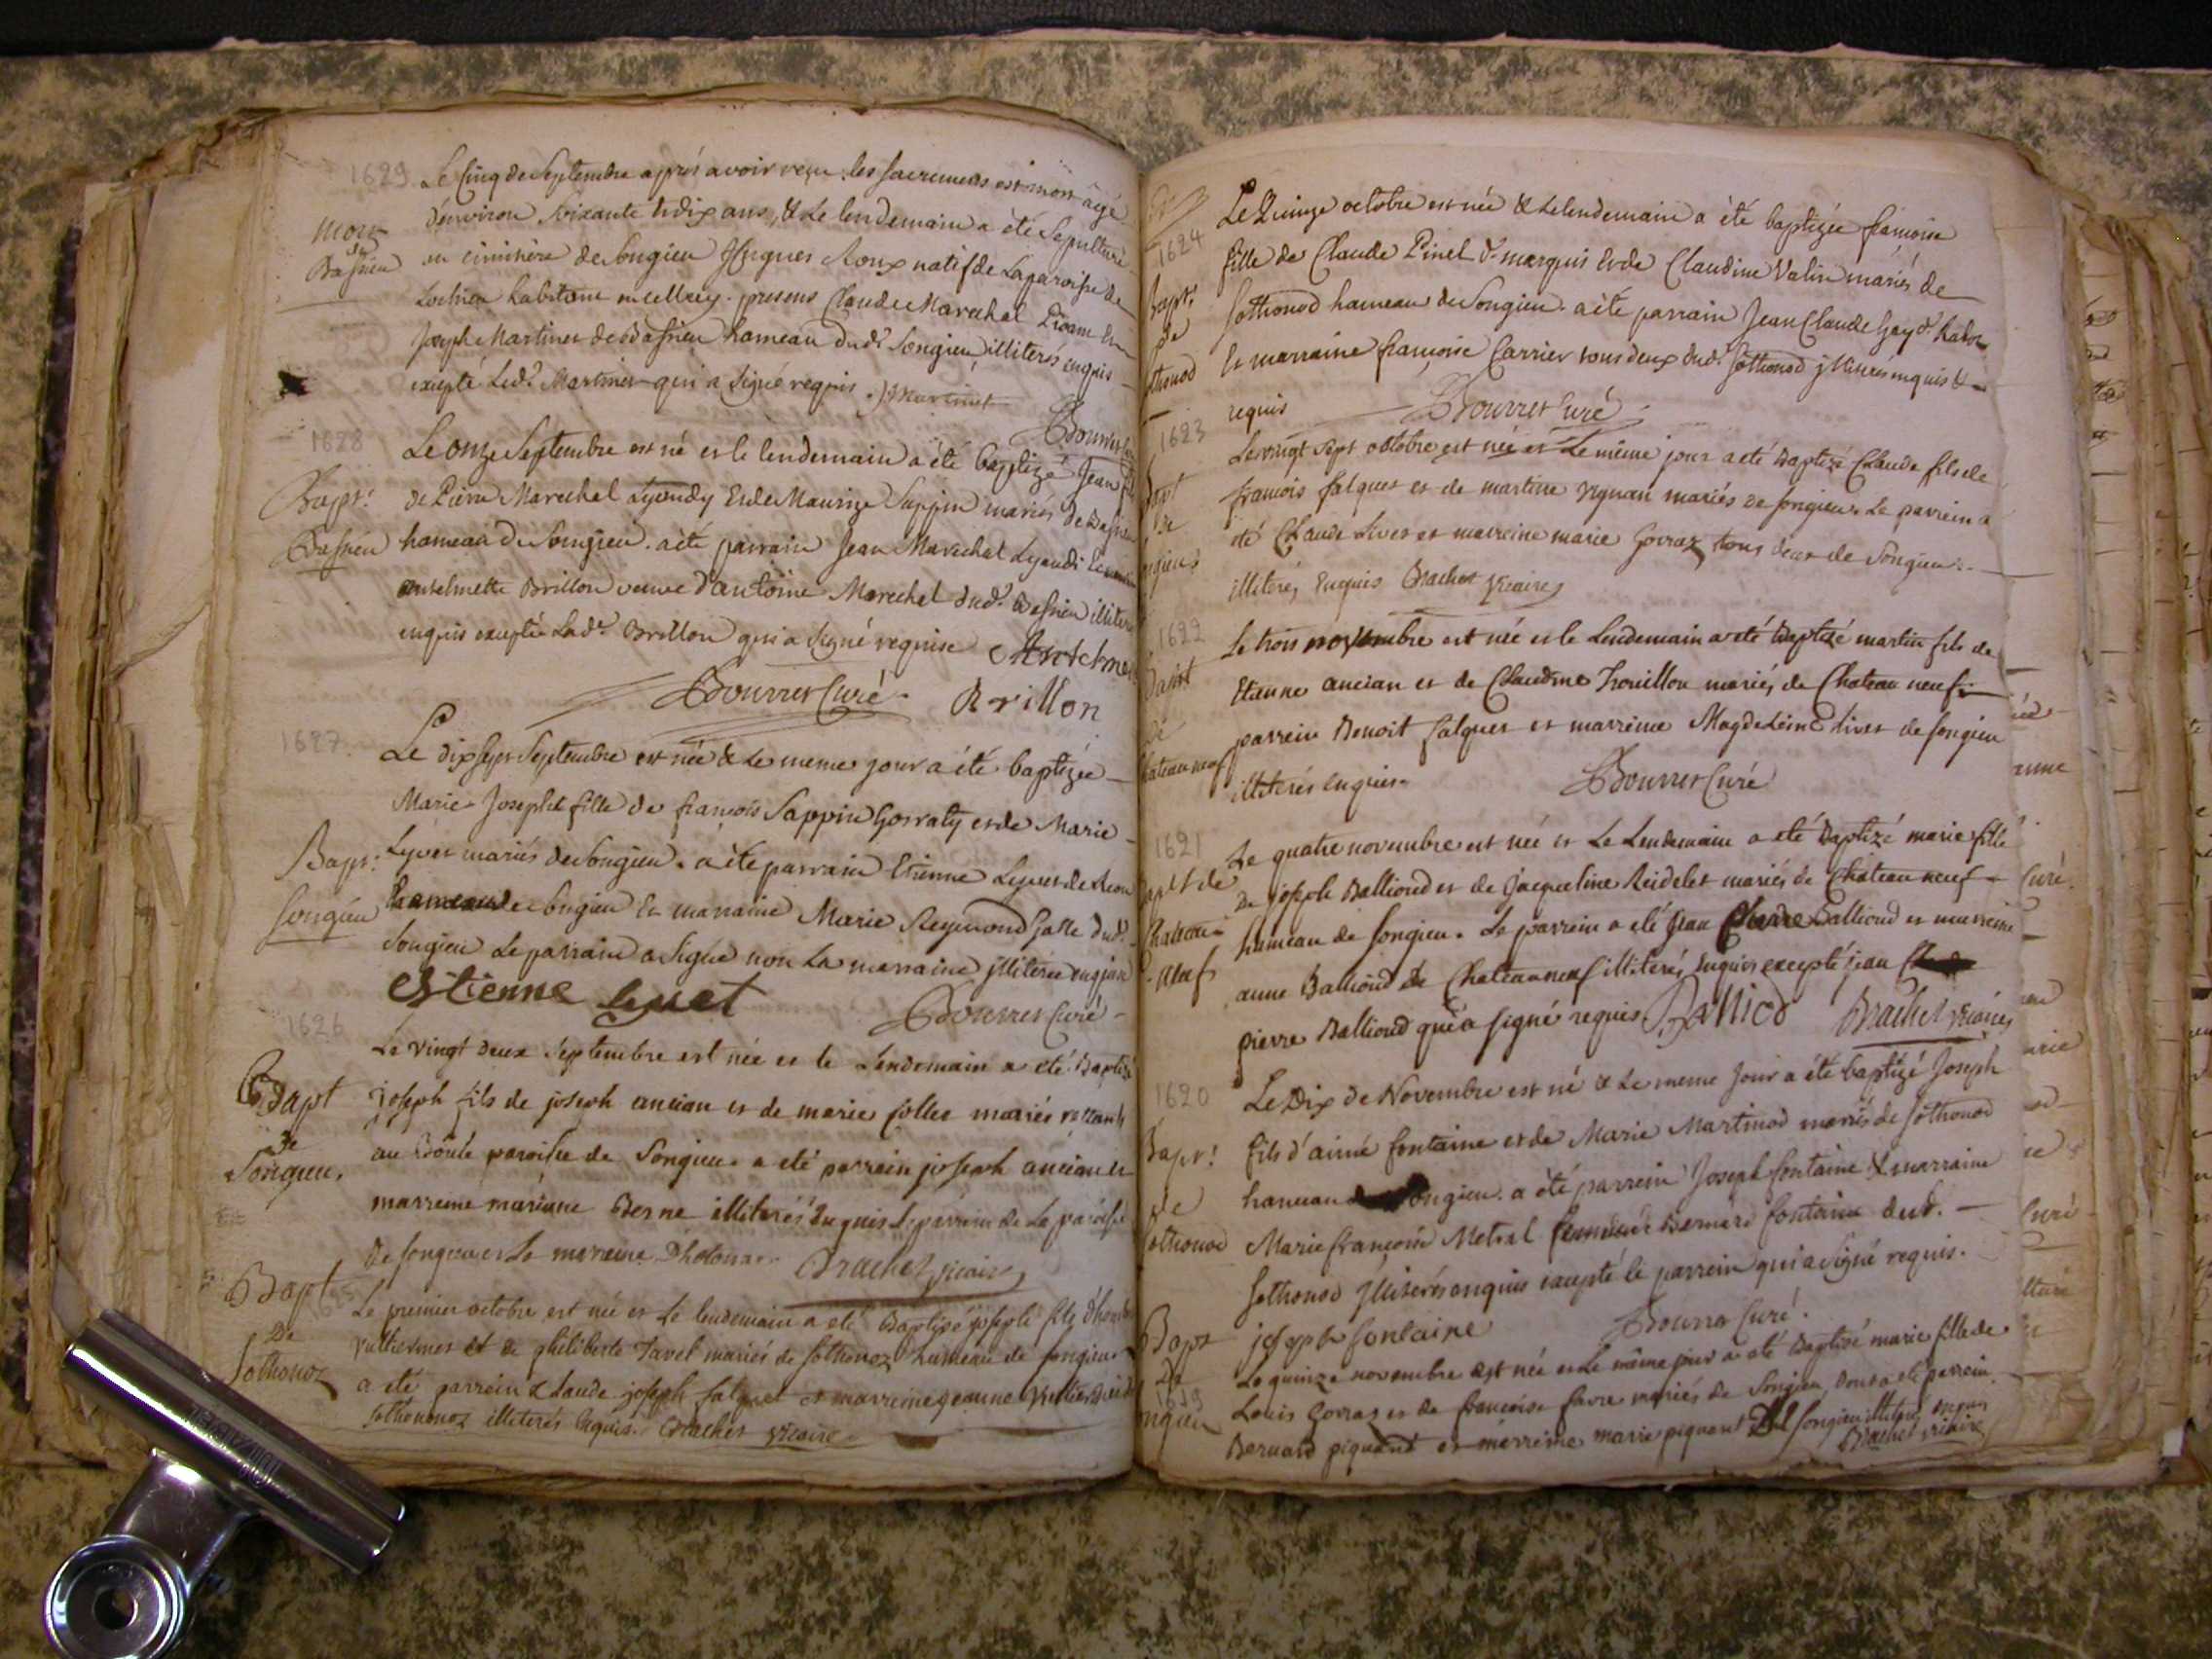 1629
Le Cinq de Septembre après avoir reçu les Sacremens est mort âgé
d'environ Soixante & dix ans, & Le lendemain a été Sepulturé
mort
de
Bassieu
au cimitière de Songieu Hugues Roux natif de La paroisse de
Lochieu habitant
presens Claude Marechal
Joseph Martinet de Bassieu hameau dud.t Songieu illiterés enquis
excepté Led.t Martinet qui a Signé requis. J Martinet
Bourret
1628
Le onze Septembre est né et le lendemain a été baptizé Jean fils
Bapt.
de Pierre Marechal Lyaudy Et de Maurize Sappin mariés de Bassieu
Bassieu
hameau de Songieu. a été parrain Jean Marechal Lyaudi
antelmette Brillon veuve d'antoine Marechal dud.t Bassieu
enquis excepté Lad.e Brillon qui a Signé requise Antelme
Bourret Curé. Brillon
1627
Le dix sept Septembre est née & Le meme jour a été baptizée
Marie Josephte fille de françois Sappin Gorraty et de Marie
Bapt:
Lyvet mariés de Songieu. a été parrain Etienne Lyvet
Songieu
hameau de Songieu Et marraine Marie Reymond
Songieu Le parrain a Signé non La marraine illiterée enquise
Estienne Lyuet
Bourret Curé
1626
Le vingt deux Septembre est née et le Lendemain a eté Baptizé
Bapt
joseph fils de joseph ancian et de marie follet mariés
de
Songieu.
paroisse de Songieu. a eté parrein joseph ancian et
marreine mariane Berne illiterés Enquis Le parrein de La paroisse
de songieu et La marreine Brachet vicaire
Bapt
Le premier octobre est née et Le lendemain a eté Baptizé joseph fils
De
Sothonoz
et de philiberte Tavel mariés de Sothonoz hameau de songieu
a eté parrein Claude joseph falquet et marreine jeanne
Sothononoz illiterés Enquis. Brachet vicaire
1624
Le Quinze octobre est née & Le lendemain a été baptizée françoise
fille de Claude Pinel d.t marquis Et de Claudine Valin mariés de
Bapt.
de
Sothonod hameau de Songieu. a été parrain Jean Claude Gay d.t
Et marraine françoise Carrier tous deux dud.t Sothonod illiterés enquis &
requis
Bourret Curé
1623
Le vingt sept octobre est née et Le même jour a eté Baptizé Claude fils de
françois falquet et de martine mariés de songieu. Le parrein a
été Claude Livet et marreine marie Gorraz tous deux de Songieu.
illiterés Enquis Brachet vicaire
1622
Le trois novembre est née et le Lendemain a eté Baptizé martin fils de
Etienne ancian et de Claudine Trouillon mariés de Chateau neuf
de
parrein Benoit falquet et marreine Magdeleine Livet de songieu
illiterés Enquis.
Bourret Curé
1621
Le quatre novembre est née et Le Lendemain a eté Baptizé marie fille
De joseph Ballioud et de Jacqueline Reidelet mariés de Chateau neuf
hameau de songieu. Le parrein a eté jean Ballioud et marreine
anne Ballioud de Chateauneuf illiterés Enquis excepté jean
pierre Ballioud qui a signé requis. Balliod Brachet vicaire
1620
Le Dix de Novembre est né & Le meme Jour a été baptizé Joseph
Bapt.
fils d'aimé fontaine et de Marie Martinod mariés de Sothonod
de
hameau Songieu. a été parrein Joseph fontaine & marraine
Sothonod
Marie françoise Metral femme de Bernard fontaine dud.
Sothonod illiterés enquis excepté le parrein qui a Signé requis.
joseph fontaine
Bourret Curé.
Bapt
De
1619
Le quinze novembre est née et Le même jour a eté Baptizé marie fille de
Louis Gorraz et de françoise favre mariés de Songieu, dont a eté parrein
Bernard piquand et marreine marie piquant De songieu illiterés enquis
Brachet vicaire